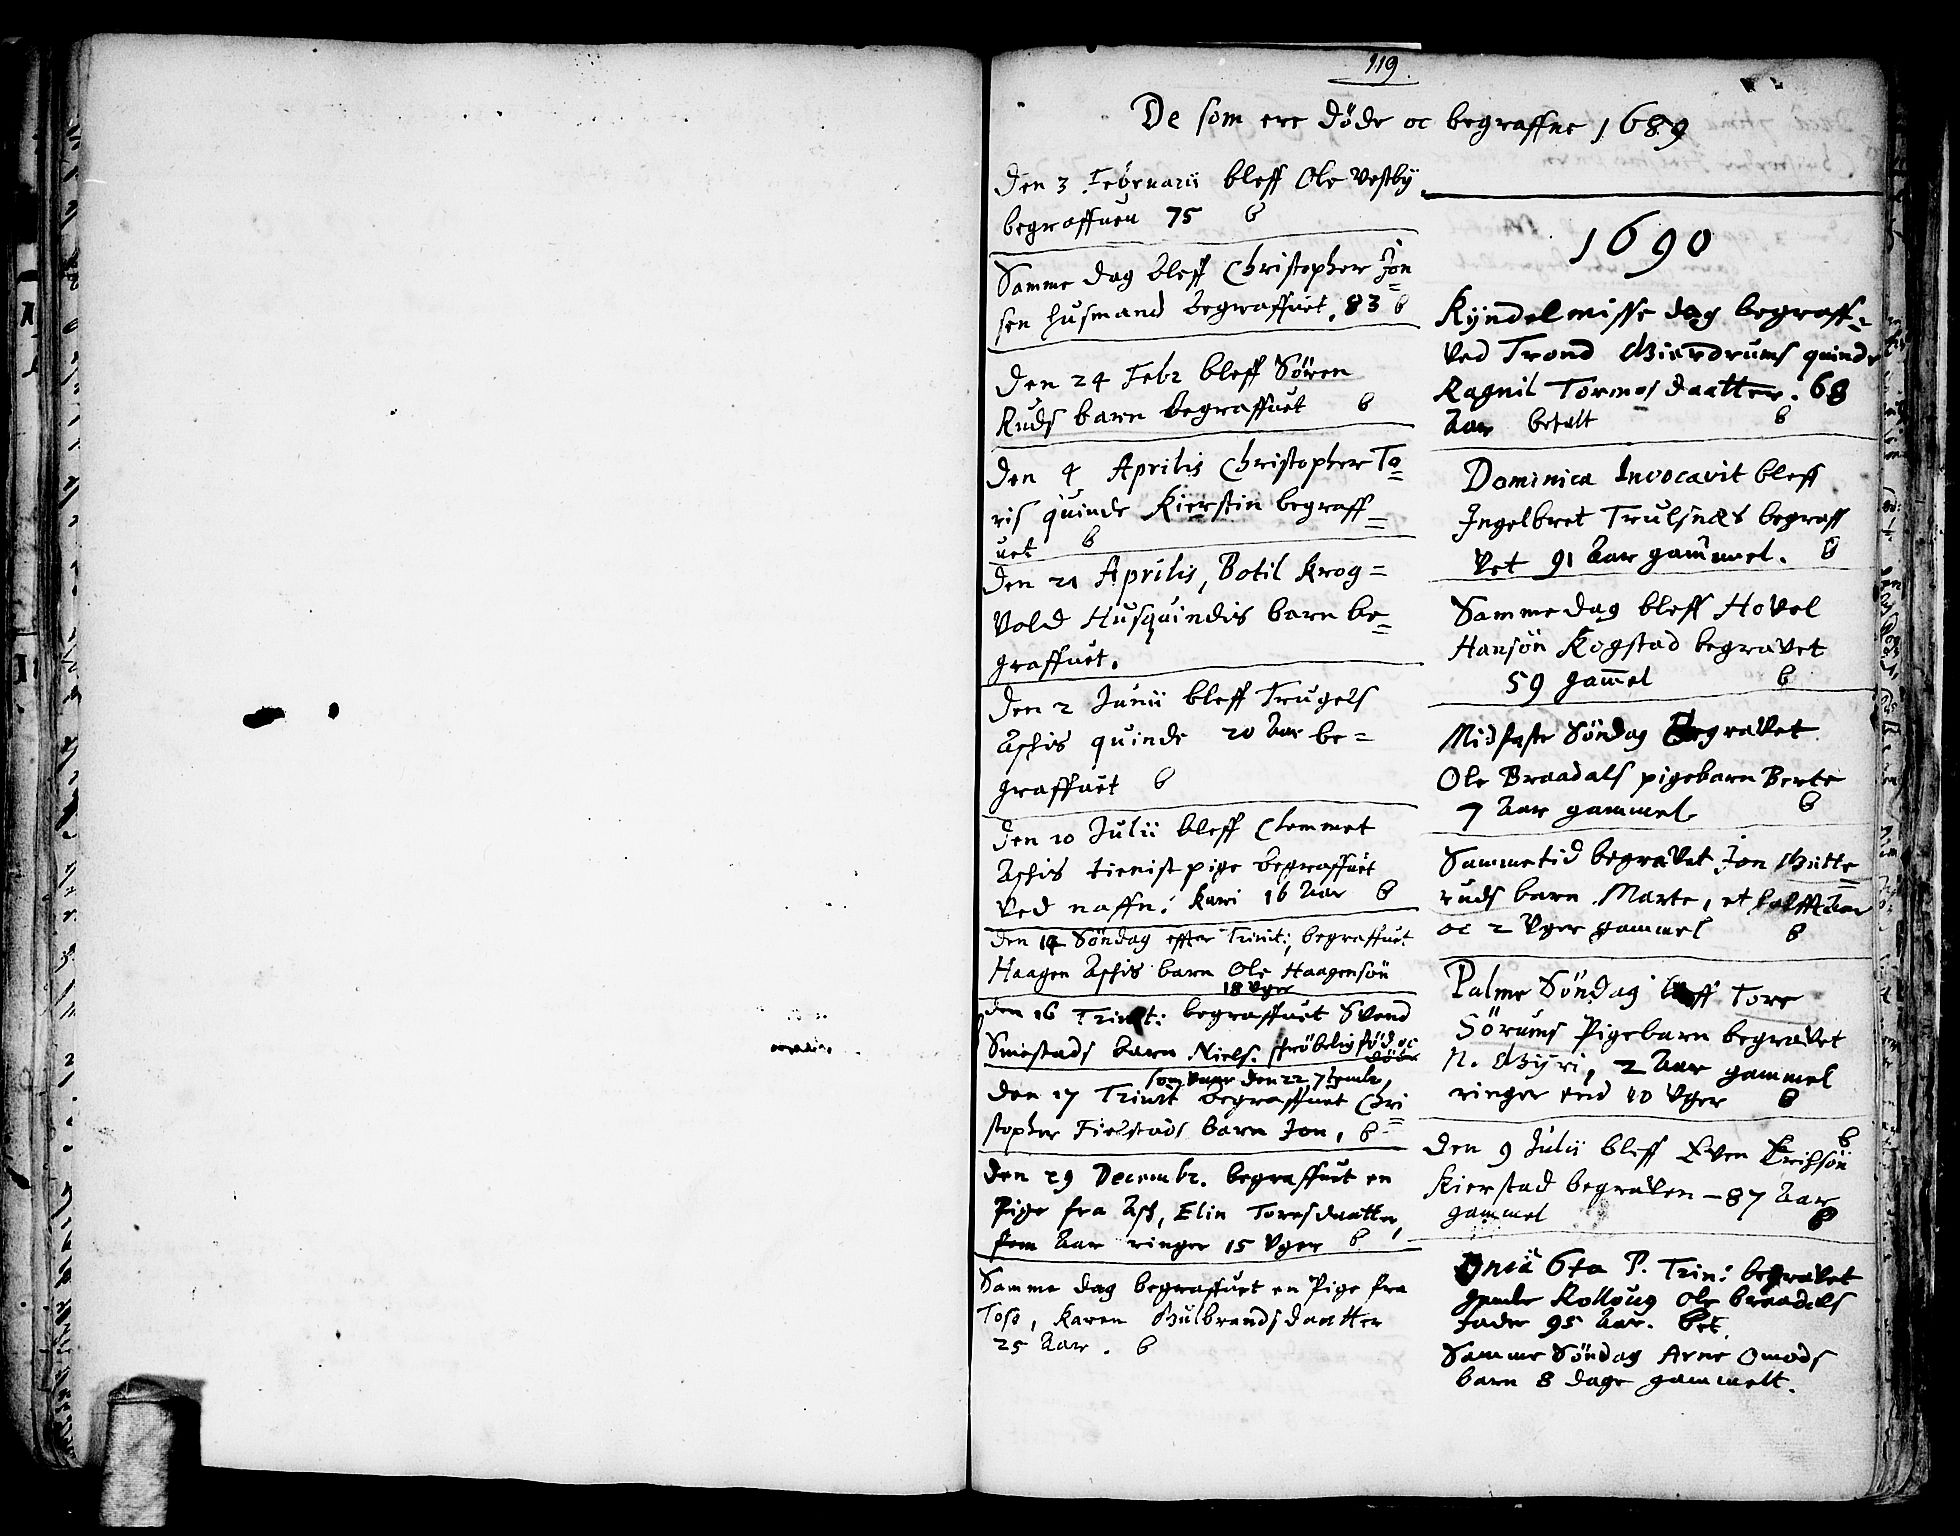 119.
De som ere døde oc begraffne 1689
Den 3 Februarii bleff Ole Vestbÿ
begraffuen 75 b
Samme dag bleff Christopher Jon=
sen husmand begraffuet. 83 b
Den 24 Febr bleff Sören
Ruds barn begraffuet b
Den 4 Aprilis Christopher To=
ris quinde Kierstin begraff=
uet b
Den 21 Aprilis, Botil Krog=
vold Husquindis barn be=
graffuet.
Den 2 Junii bleff Trugels
Aschis quinde 20 Aar be=
graffuet b
Den 10 Julii bleff Clemmet
Aschis tienist pige begraffuet
ved naffn: Kari 16 Aar b
Den 14 Söndag effter Trinit: begraffuet
Haagen Aschis barn Ole Haagensön
18 Uger
Den 16 Trinit: begraffuet Svend
Smestads barn Niels. död oc
döbt
som vaar den 22 7tembr,
Den 17 Trinit begraffuet Chri=
stopher Fielstads barn Jon, b
Den 29 Decembr. begraffuet en
Pige fra Ash, Elin Toresdaatter,
fem Aar ringer 15 Uger b
Samme dag begraffuet en Pige fra
Toso, Karen Gulbrandsdaatter
25 Aar. b
1690
Kÿndelmisse dag begraff=
ved Trond Gierdrums quinde
Ragnil Tormosdaatter. 68
Aar betalt b
Dominica Invocavit bleff
Ingelbret Trulsnæs begraff
vet 91 Aar gammel. b
Samme dag bleff Hovel
Hansön Kogstad begravet
59 gam̄el b
Midfaste Söndag Begravet
Ole Braadals pigebarn Berte
7 Aar gammel b
Sammetid begravet Jon Gutte=
ruds barn Marte, et halfft Aar
oc 2 Uger gammel b
Palme Söndag bleff Tore
Sörums Pigebarn begravet
N. Gÿri, 2 Aar gammel
ringer end 10 Uger b
Den 9 Julii bleff Even Erichsön b
Kierstad begraven – 87 Aar
gammel b
Dnica 6ta P. Trin: begravet
gamle Rolloug Ole Braadals
fader 95 Aar. bet.
Samme Söndag Arne Omods
barn 8 dage gammelt.